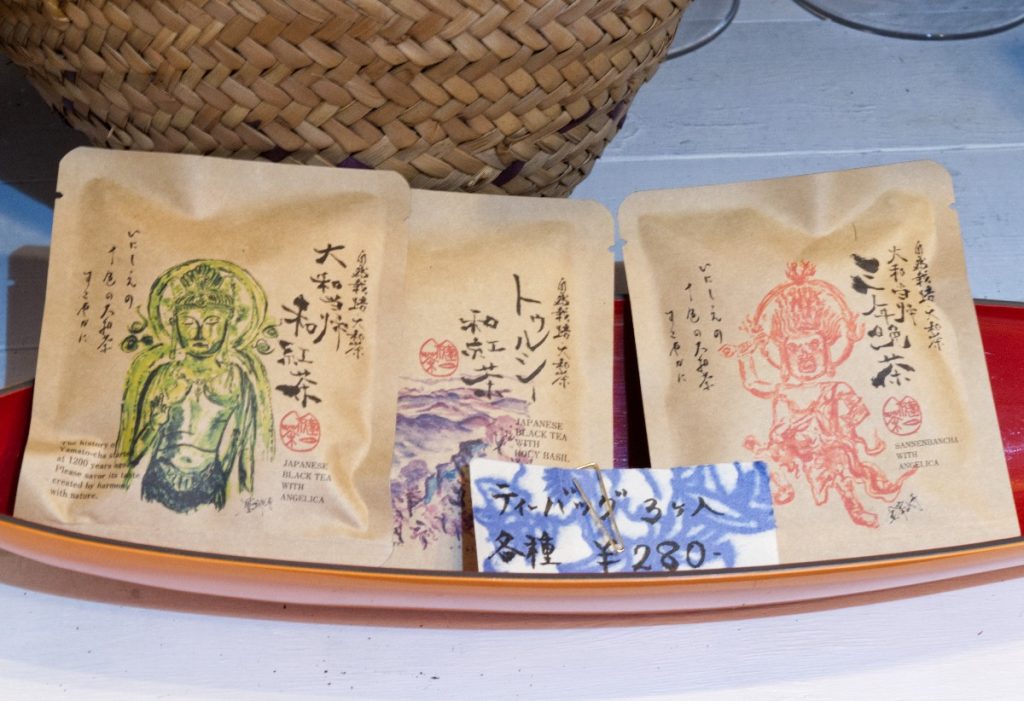 自然栽培大和茶
大和当帰
和紅茶
いにしえの
すこやかに
The history of
Yamato-cha started
at 1200 years ago.
Please savor its taste
created by harmony
with nature.
JAPANESE
BLACK TEA
WITH
ANGELICA
自然栽培大和茶
トゥルシー
和紅茶
JAPANESE
BLACK TEA
WITH
HOLY BASIL
自然栽培大和茶
大和当帰
三年晩茶
いにしえの
すこやかに
SANNENBANCHA
WITH
ANGELICA
ティーバッグ 3ヶ入
各種 ¥280-